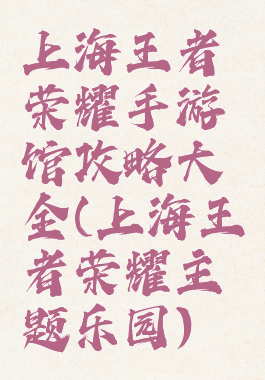 上海王者
荣耀手游
馆攻略大
全(上海王
者荣耀主
题乐园)